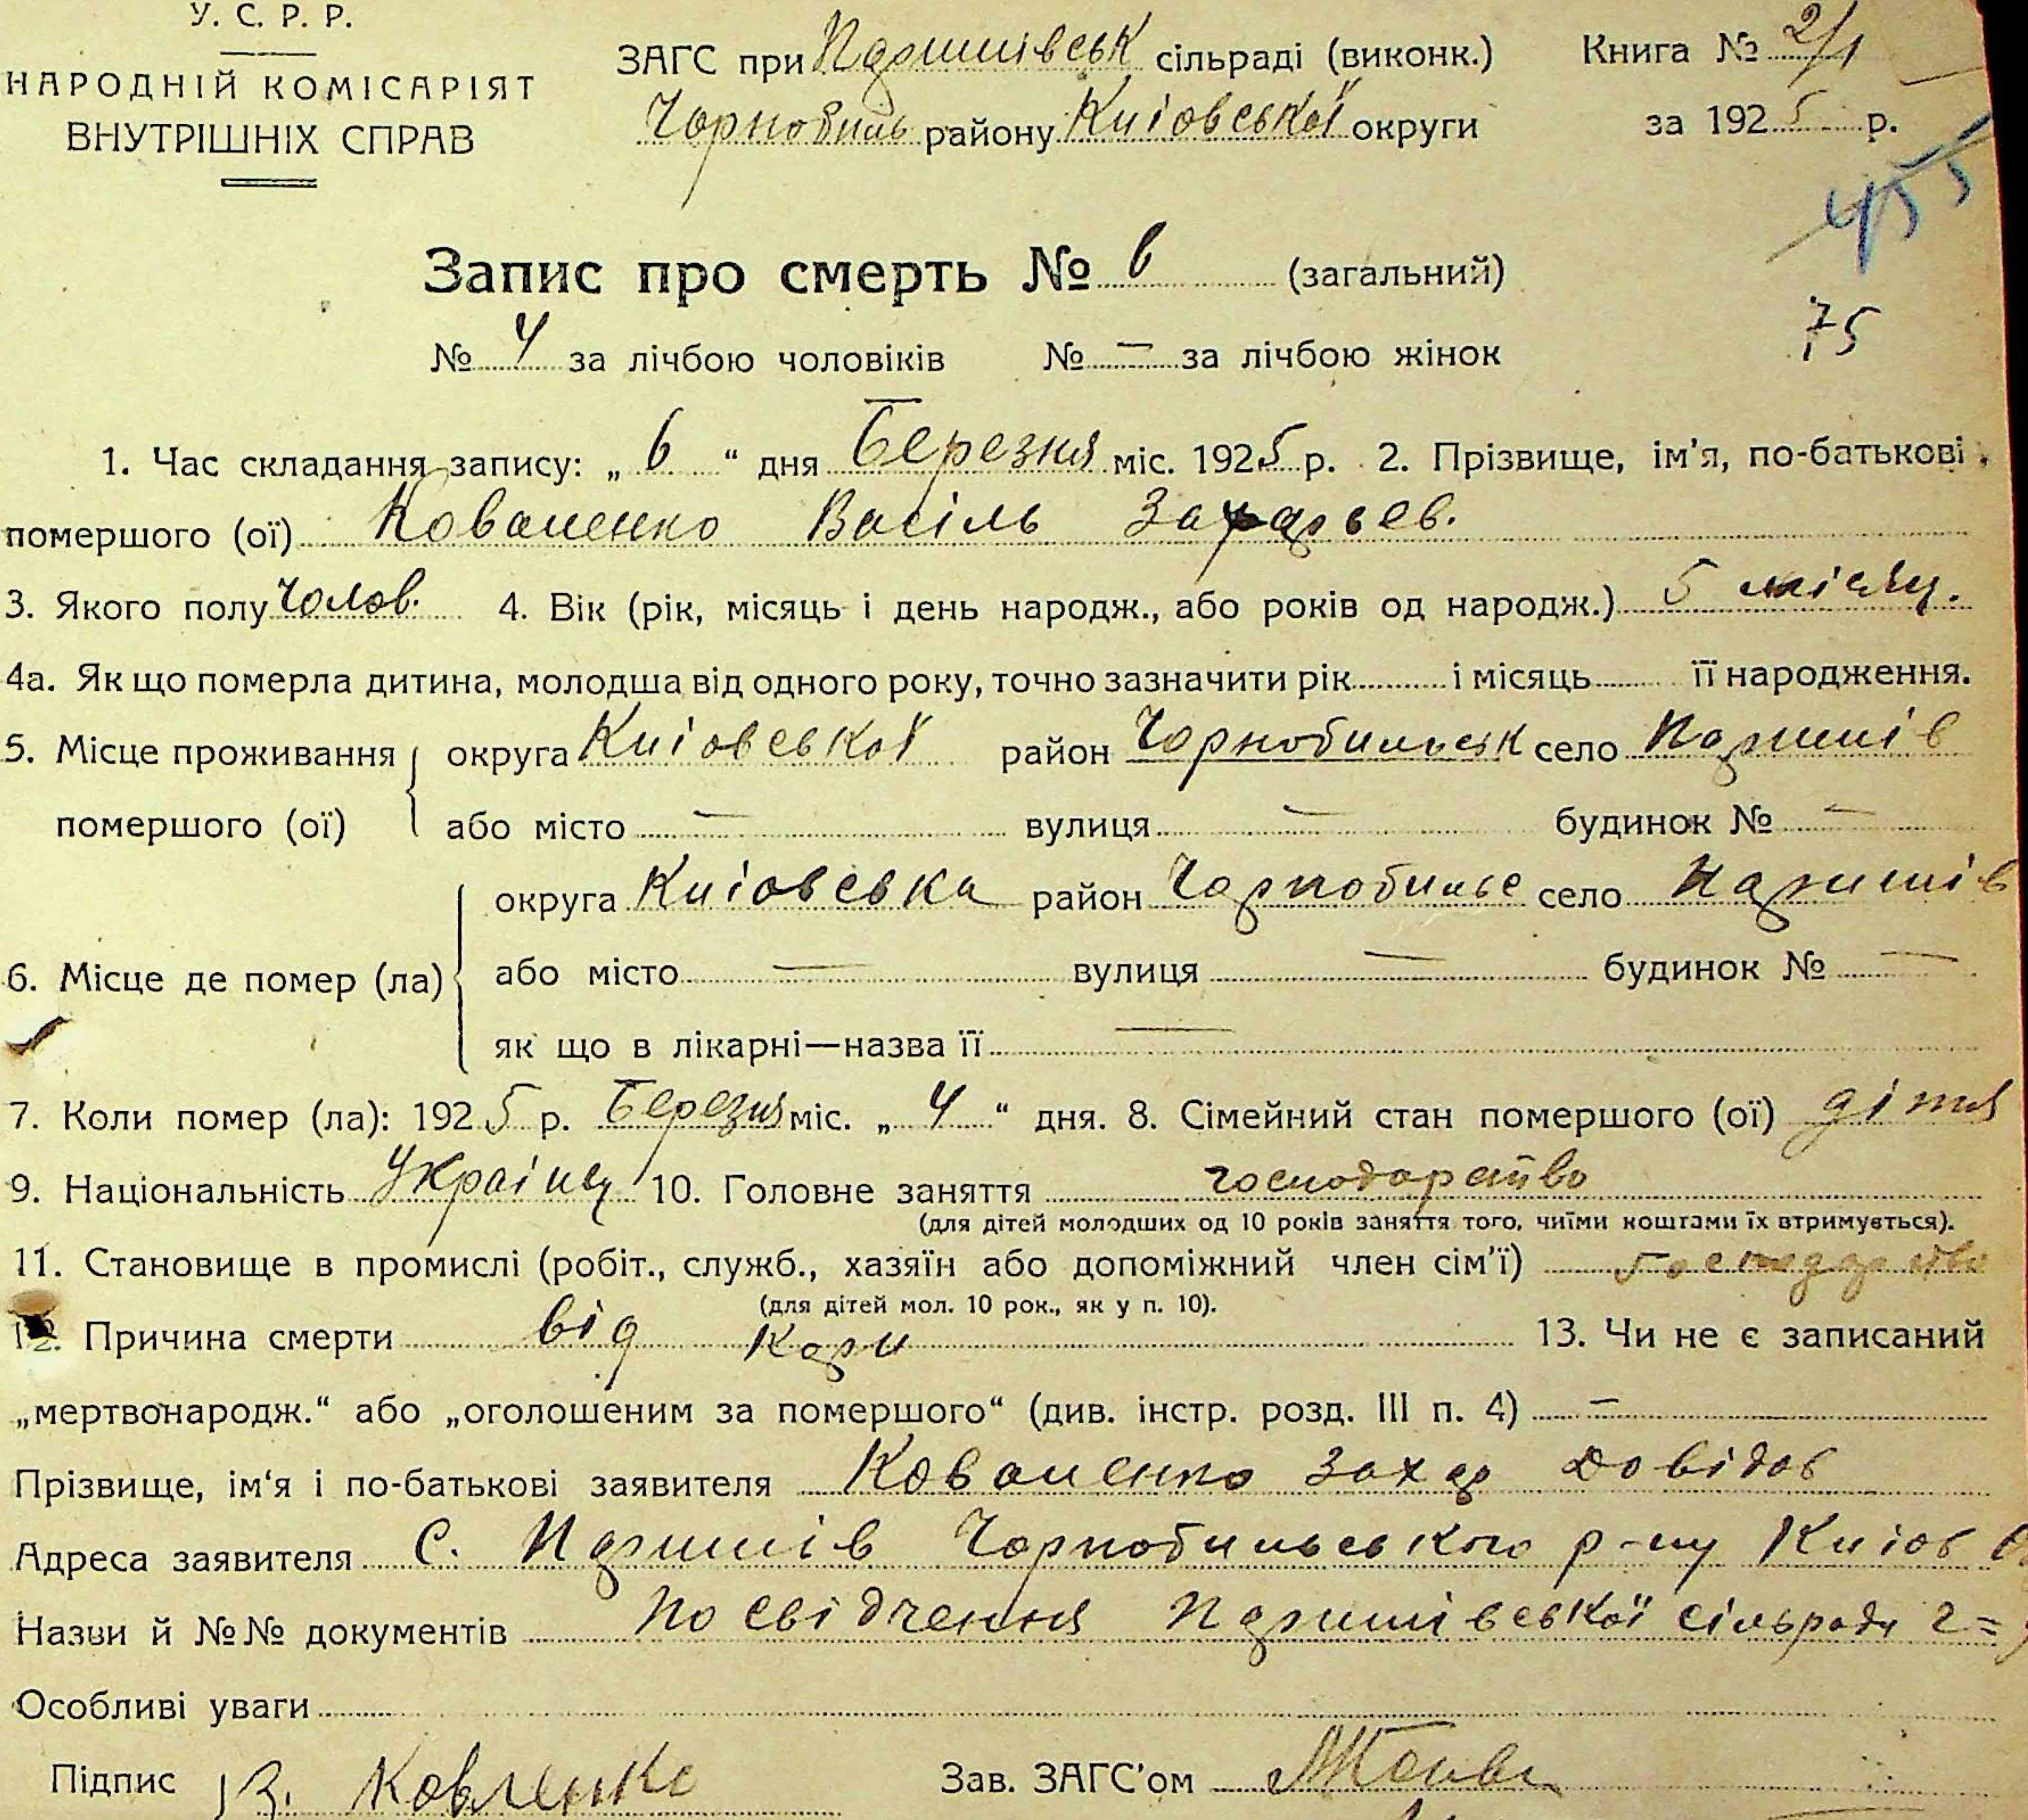 У. С. Р. Р.
НАРОДНІЙ КОМІСАРІЯТ
ВНУТРІШНІХ СПРАВ
ЗАГС при Паришівськ сільраді (виконк.)
Чорнобиль району Киіовської округи
Книга № 2/1
за 1925 р.
455
Запис про смерть № 6 (загальний)
75
№ 4 за лічбою чоловіків № — за лічбою жінок
1. Час складання запису: „ 6 “ дня Березня міс. 1925 р. 2. Прізвище, ім'я, по-батькові
помершого (ої) Коваленко Васіль Захарьев.
3. Якого полу Чолов. 4. Вік (рік, місяць і день народж., або років од народж.) 5 місяц.
4а. Як що померла дитина, молодша від одного року, точно зазначити рік і місяць її народження.
5. Місце проживання помершого (ої) округа Киіовської район Чорнобильськ село Паришів
або місто — вулиця — будинок № —
6. Місце де помер (ла) округа Киіовська район Чарнобильс село Паришів
або місто — вулиця — будинок № —
як що в лікарні—назва її —
7. Коли помер (ла): 1925 р. Березня міс. „ 4 “ дня. 8. Сімейний стан помершого (ої) дітя
9. Національність Украінц 10. Головне заняття господарство
(для дітей молодших од 10 років заняття того, чиїми коштами їх втримується).
11. Становище в промислі (робіт., служб., хазяїн або допоміжний член сім'ї) господарство
(для дітей мол. 10 рок., як у п. 10).
12. Причина смерти від Кари 13. Чи не є записаний
„мертвонародж.“ або „оголошеним за помершого“ (див. інстр. розд. III п. 4) —
Прізвище, ім'я і по-батькові заявителя Коваленко Захар Довідов
Адреса заявителя С. Паришів Чорнобильського р-ну Киіов
Назви й №№ документів Посвідчення Паришівської сільради
Особливі уваги
Підпис З. Ковленко Зав. ЗАГС'ом